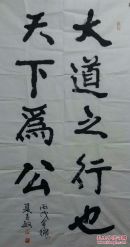 大道之行也
天下為公